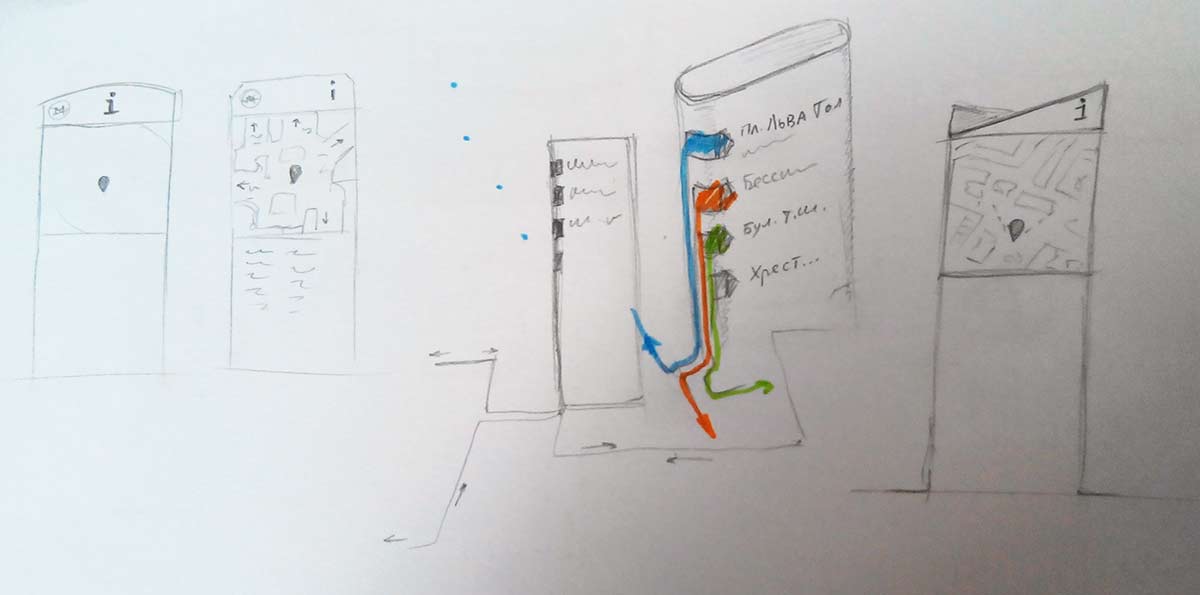 i
i
пл. Льва Тол
Бесс
Бул. Т.Ш.
Хрест...
i